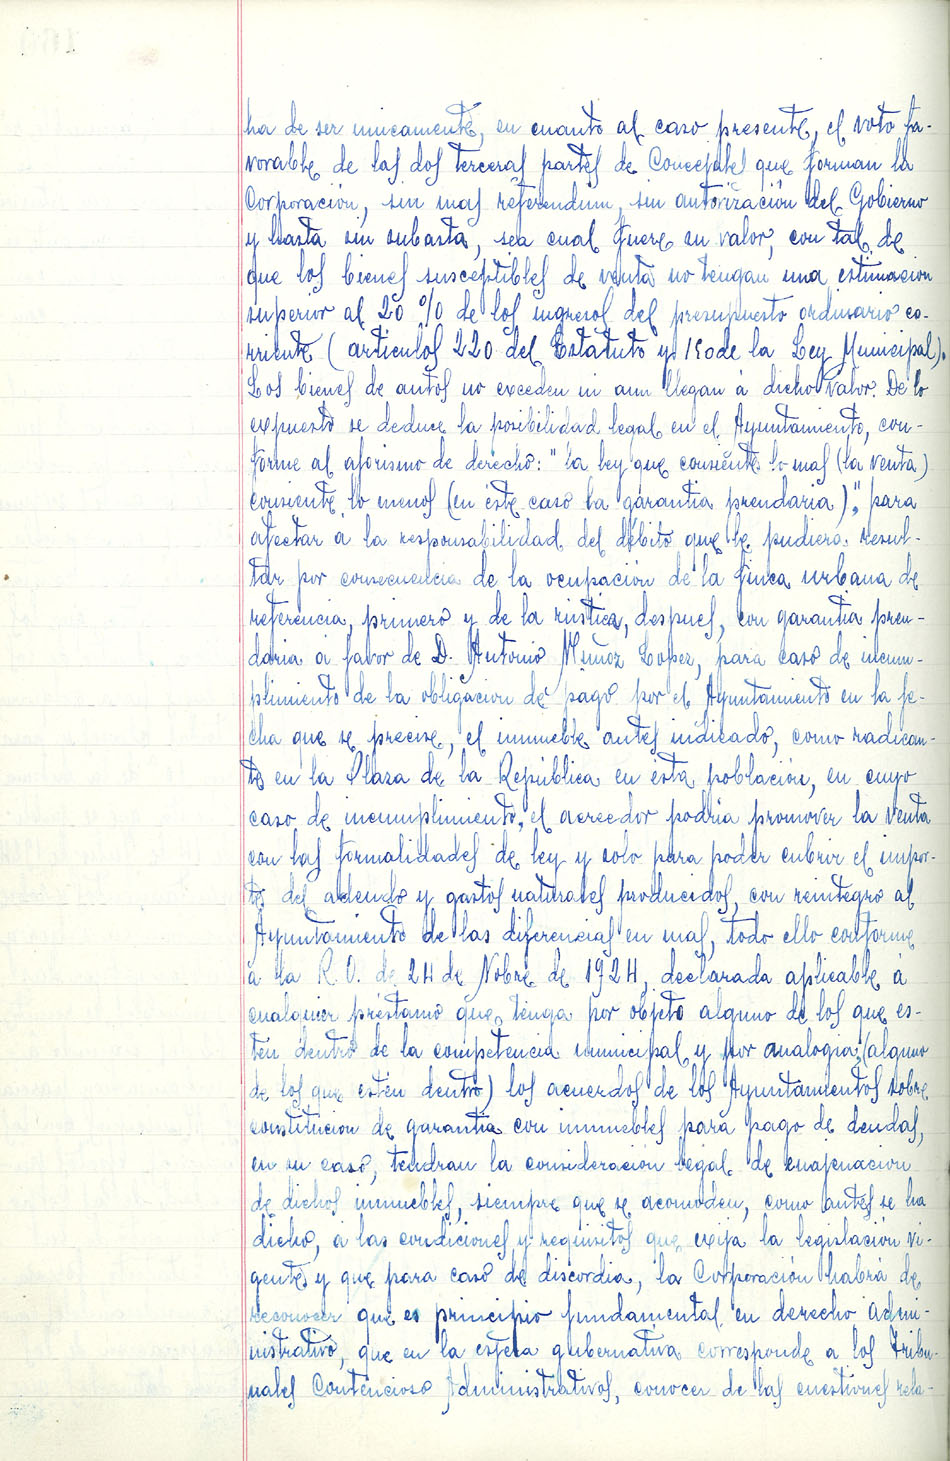 ha de ser unicamente, en cuanto al caso presente, el voto fa-
vorable de las dos terceras partes de Concejales que forman la
Corporación, sin mas referendum, sin autorización del Gobierno
y hasta sin subasta, sea cual fuere su valor, con tal de
que los bienes susceptibles de venta no tengan una estimacion
superior al 20 % de los ingresos del presupuesto ordinario co-
rriente (articulos 220 del Estatuto y 150 de la Ley Municipal).
Los bienes de autos no exceden ni aun llegan á dicho valor. De lo
expuesto se deduce la posibilidad legal en el Ayuntamiento, con-
forme al aforismo de derecho: "la ley que consiente lo mas (la venta)
consiente lo menos (en éste caso la garantia prendaria)", para
afectar á la responsabilidad del débito que le pudiera resul-
tar por consecuencia de la ocupación de la finca urbana de
referencia, primero y de la rústica, despues, con garantia pren-
daria a favor de D. Antonio Muñoz Lopez, para caso de incum-
plimiento de la obligacion de pago por el Ayuntamiento en la fe-
cha que se precise, el inmueble antes indicado, como radican-
te en la Plaza de la República en ésta población, en cuyo
caso de incumplimiento, el acreedor podria promover la venta
con las formalidades de ley y solo para poder cubrir el impor-
te del adeudo y gastos naturales producidos, con reintegro al
Ayuntamiento de las diferencias en mas, todo ello conforme
á la R.O. de 24 de Nobre de 1924, declarada aplicable á
cualquier préstamo que tenga por objeto alguno de los que es-
ten dentro de la competencia municipal y por analogia, (alguno
de los que estén dentro) los acuerdos de los Ayuntamientos sobre
constitucion de garantia con inmuebles para pago de deudas,
en su caso, tendran la consideración legal de enajenacion
de dichos inmuebles, siempre que se acomoden, como antes se ha
dicho, á las condiciones y requisitos que exija la legislación vi-
gente, y que para caso de discordia, la Corporación habrá de
reconocer que es principio fundamental en derecho admi-
nistrativo, que en la esfera gubernativa corresponde a los Tribu-
nales Contencioso Administrativos, conocer de las cuestiones rela-